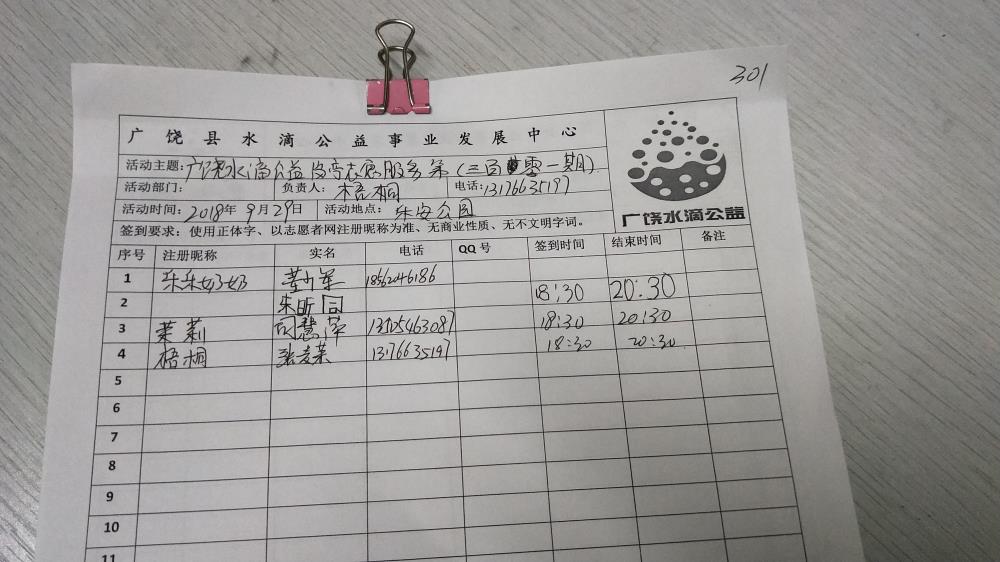 301
广饶县水滴公益事业发展中心
广饶水滴公益
活动主题：广饶水滴公益凉亭志愿服务第（三百零一期）
活动部门： 负责人：梧桐 电话：13176635197
活动时间：2018年9月29日 活动地点：乐安公园
签到要求：使用正体字、以志愿者网注册昵称为准、无商业性质、无不文明字词。
序号 注册昵称 实名 电话 QQ号 签到时间 结束时间 备注
1 乐乐奶奶 18562046186
2 18:30 20:30
3 茉莉 13105463087 18:30 20:30
4 梧桐 13176635197 18:30 20:30
5
6
7
8
9
10
11